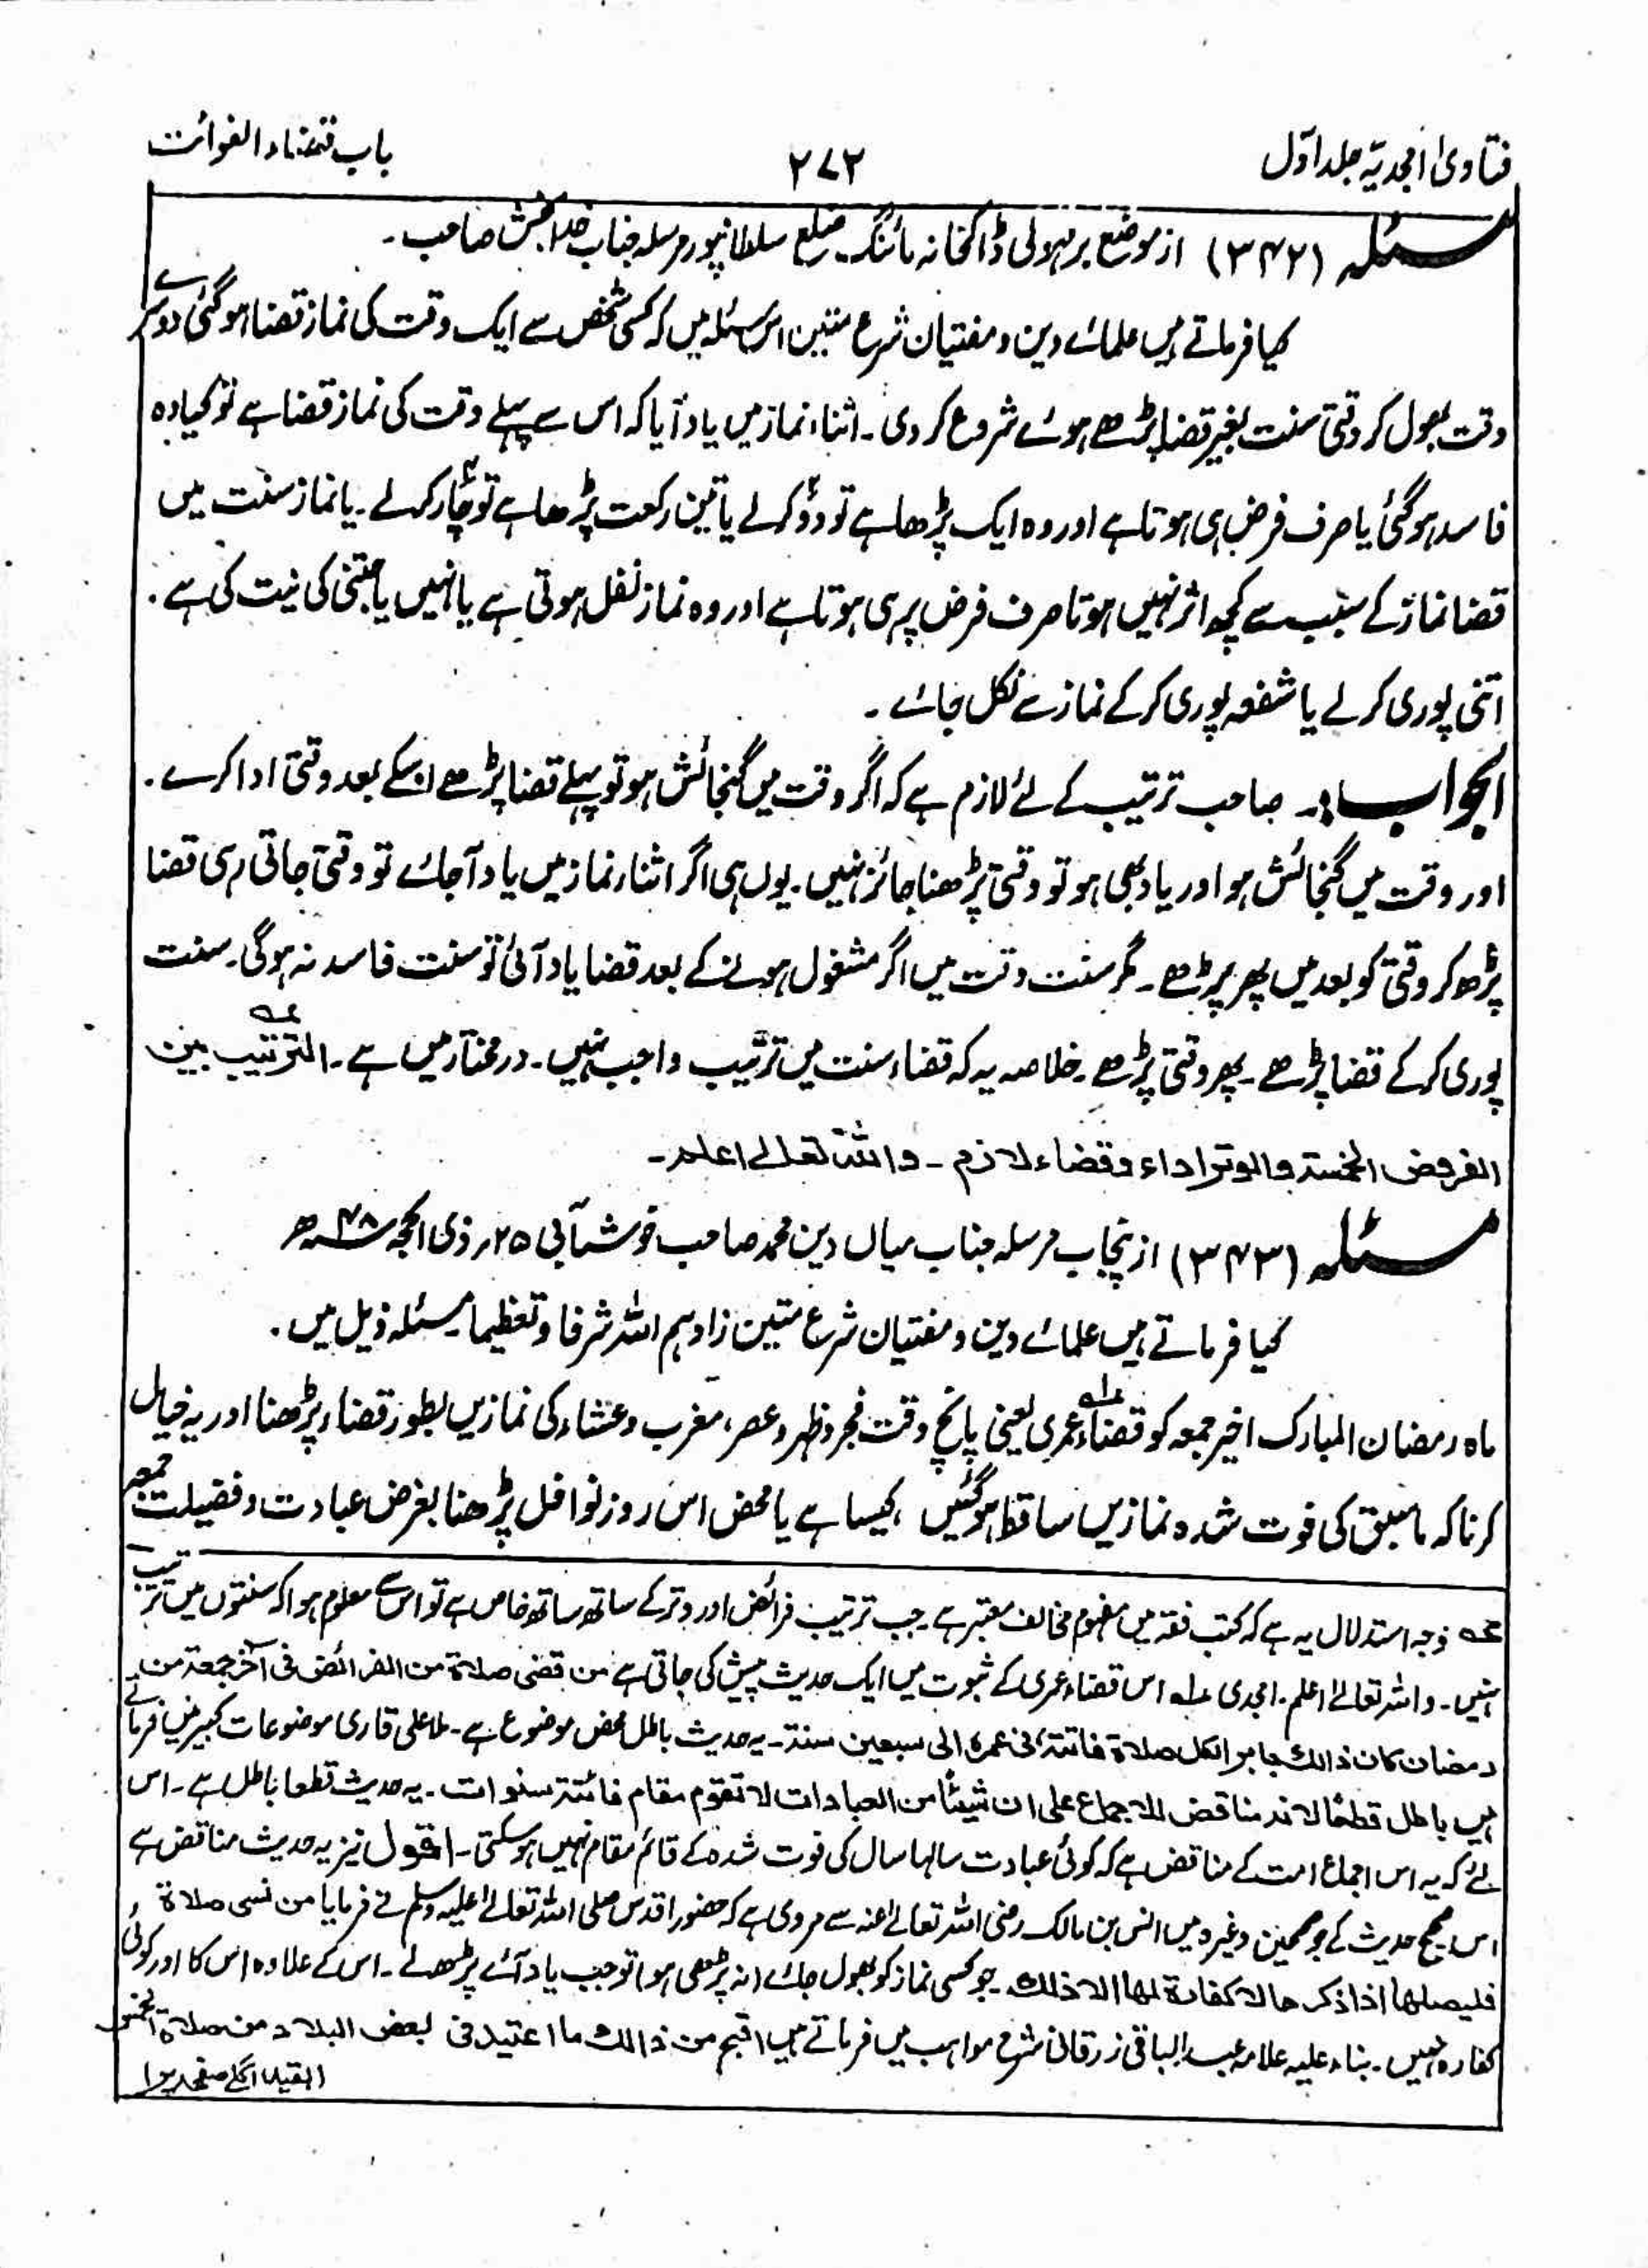 فتاویٰ امجدیہ جلد اوّل
۲۷۲
باب قضاء الفوائت
مسئلہ (۳۴۲) از موضع برہولی ڈاکخانہ مائنگ۔ ضلع سلطانپور مرسلہ جناب خدا بخش صاحب۔
کیا فرماتے ہیں علمائے دین و مفتیان شرع متین اس مسئلہ میں کہ کسی شخص سے ایک وقت کی نماز قضا ہو گئی دوسرے
وقت بھول کر وقتی سنت بغیر قضا پڑھے ہوئے شروع کر دی۔ اثناء نماز میں یاد آیا کہ اس سے پہلے وقت کی نماز قضا ہے تو کیا وہ
فاسد ہو گئی یا صرف فرض ہی ہوتا ہے اور وہ ایک پڑھا ہے تو دو کرلے یا تین رکعت پڑھا ہے تو چار کرلے۔ یا نماز سنت میں
قضا نماز کے سبب سے کچھ اثر نہیں ہوتا صرف فرض پر ہی ہوتا ہے اور وہ نماز نفل ہوتی ہے یا نہیں یا جتنی کی نیت کی ہے۔
اتنی پوری کرلے یا شفعہ پوری کر کے نماز سے نکل جائے۔
الجواب:۔ صاحب ترتیب کے لئے لازم ہے کہ اگر وقت میں گنجائش ہو تو پہلے قضا پڑھے اسکے بعد وقتی ادا کرے۔
اور وقت میں گنجائش ہو اور یاد بھی ہو تو وقتی پڑھنا جائز نہیں۔ یوں ہی اگر اثناء نماز میں یاد آ جائے تو وقتی جاتی رہی قضا
پڑھ کر وقتی کو بعد میں پھر پڑھے۔ مگر سنت وقت میں اگر مشغول ہونے کے بعد قضا یاد آئی تو سنت فاسد نہ ہوگی۔ سنت
پوری کر کے قضا پڑھے۔ پھر وقتی پڑھے۔ خلاصہ یہ کہ قضاء سنت میں ترتیب واجب نہیں۔ درمختار میں ہے۔ الترتیب عہ بین
الفروض الخمسۃ والوتر اداء وقضاء لازم۔ واللہ تعالےٰ اعلم۔
مسئلہ (۳۴۳) از پنجاب مرسلہ جناب میاں دین محمد صاحب خوشابی ۲۵؍ ذی الحجہ ۴۸ھ
کیا فرماتے ہیں علمائے دین و مفتیان شرع متین زادہم اللہ شرفا و تعظیما مسئلہ ذیل میں۔
ماہ رمضان المبارک اخیر جمعہ کو قضاء عمری عہ۱ یعنی پانچ وقت فجر و ظہر و عصر، مغرب و عشاء کی نمازیں بطور قضاء پڑھنا اور یہ خیال
کرنا کہ ما سبق کی فوت شدہ نمازیں ساقط ہو گئیں، کیسا ہے یا محض اس روز نوافل پڑھنا بغرض عبادت و فضیلت جمعہ
عہ وجہ استدلال یہ ہے کہ کتب فقہ میں مفہوم مخالف معتبر ہے۔ جب ترتیب فرائض اور وتر کے ساتھ ساتھ خاص ہے تو اس سے معلوم ہوا کہ سنتوں میں ترتیب
نہیں۔ واللہ تعالےٰ اعلم۔ امجدی عہ۱ اس قضاء عمری کے ثبوت میں ایک حدیث پیش کی جاتی ہے من قضی صلاۃ من الفرائض فی آخر جمعۃ من
رمضان کان ذالک جابرا لکل صلاۃ فائتۃ فی عمرہ الی سبعین سنۃ۔ یہ حدیث باطل محض موضوع ہے۔ ملا علی قاری موضوعات کبیر میں فرماتے
ہیں باطل قطعًا لانہ مناقض للاجماع علی ان شیئًا من العبادات لا تقوم مقام فائتۃ سنوات۔ یہ حدیث قطعا باطل ہے۔ اس
لئے کہ یہ اس اجماع امت کے مناقض ہے کہ کوئی عبادت سالہا سال کی فوت شدہ کے قائم مقام نہیں ہو سکتی۔ اقول نیز یہ حدیث مناقض ہے
اس صحیح حدیث کے جو صحیحین وغیرہ میں انس بن مالک رضی اللہ تعالےٰ عنہ سے مروی ہے کہ حضور اقدس صلی اللہ تعالےٰ علیہ وسلم نے فرمایا من نسی صلاۃ
فلیصلہا اذا ذکرھا لا کفارۃ لھا الا ذلک۔ جو کسی نماز کو بھول جائے (نہ پڑھی ہو) تو جب یاد آئے پڑھ لے۔ اس کے علاوہ اس کا اور کوئی
کفارہ نہیں۔ بناء علیہ علامہ عبد الباقی زرقانی شرح مواہب میں فرماتے ہیں اقبح من ذالک ما اعتید فی بعض البلاد من صلاۃ الخمس
(بقیہ اگلے صفحہ پر)